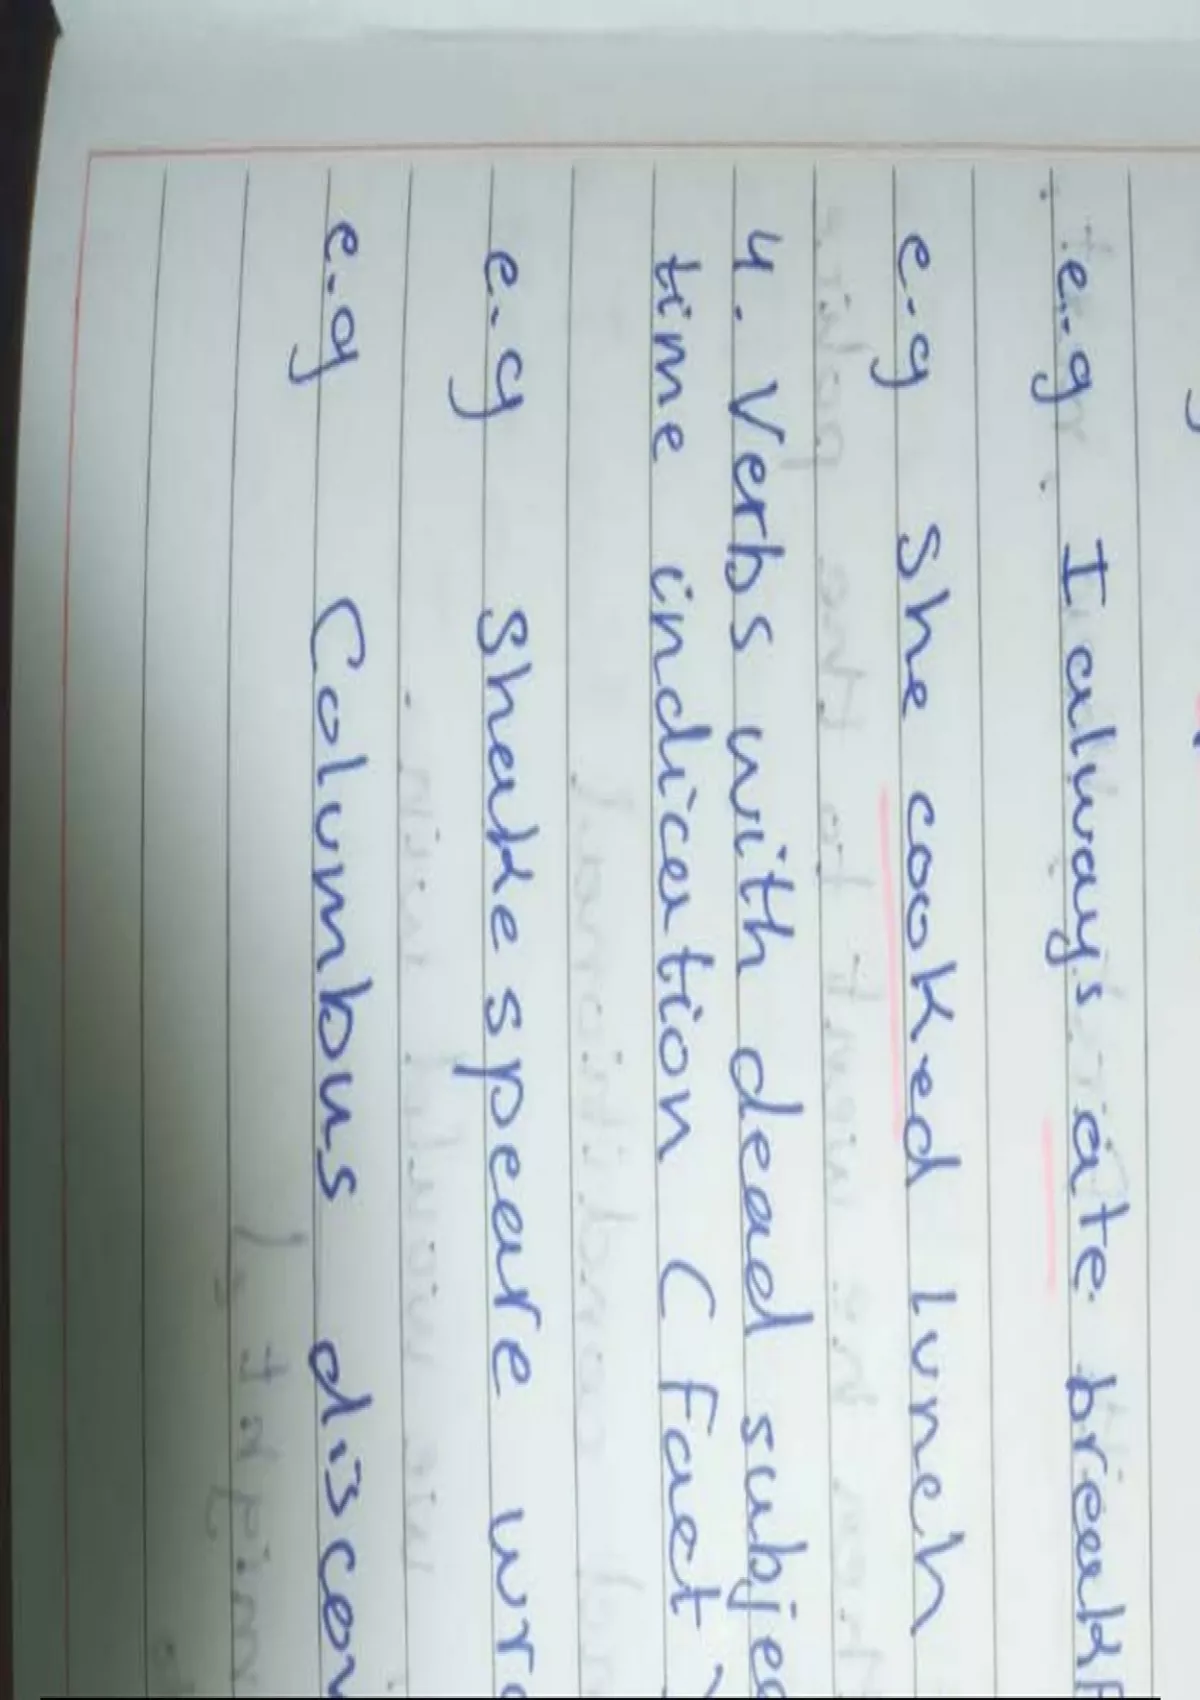 e.g. I always ate breakf
e.g She cooked lunch
4. Verbs with dead subjec
time indication (Fact)
e.g Shakespeare wro
e.g Columbus discov